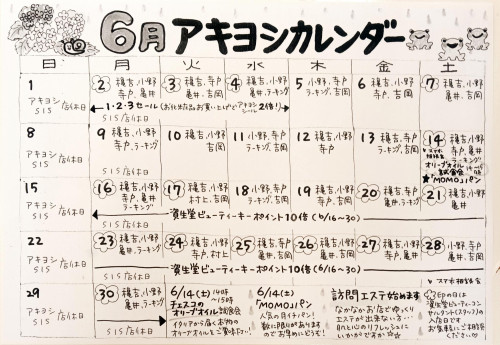 6月アキヨシカレンダー
日 月 火 水 木 金 土
1
アキヨシ
SIS 店休日
2 穐吉、小野
寺戸、亀井
3 穐吉、寺戸
亀井、吉岡
4 穐吉、小野
ラーキング、吉岡
5 小野、寺戸
ラーキング、吉岡
6 穐吉、小野
寺戸、亀井
7 穐吉、小野
寺戸、亀井
ラーキング、吉岡
1・2・3セール
2倍!)
SIS 店休日
8
アキヨシ
SIS 店休日
9 穐吉、小野
寺戸、ラーキング
10 穐吉、小野
吉岡
11 小野、寺戸
ラーキング、吉岡
12 穐吉、小野
寺戸
13 穐吉、亀井
ラーキング、吉岡
14 穐吉、小野
寺戸、亀井
ラーキング
オリーブオイル
試食会
★「MOMO」パン
15
アキヨシ
SIS 店休日
16 穐吉、小野
寺戸、亀井
ラーキング
17 穐吉、小野
村上、吉岡
18 穐吉、小野
ラーキング、吉岡
19 穐吉、寺戸
ラーキング、吉岡
20 穐吉、寺戸
亀井、ラーキング
21 小野、寺戸
亀井、ラーキング
資生堂ビューティーキーポイント10倍(6/16〜30)
22
アキヨシ
SIS 店休日
23 穐吉、小野
寺戸、亀井
24 穐吉、小野
寺戸、村上
25 穐吉、小野
亀井、吉岡
26 穐吉、小野
亀井、吉岡
27 穐吉、寺戸
亀井、ラーキング
28 小野、寺戸
亀井、吉岡
資生堂ビューティーキーポイント10倍(6/16〜30)
29
アキヨシ
SIS 店休日
30 穐吉、小野
亀井、ラーキング
6/14(土) 14時
〜15時
チェスコの
オリーブオイル試食会
イタリアから届く本物の
オリーブオイルをご賞味下さい!
6/14(土)
「MOMO」パン
人気の月イチパン!
数に限りがあります
のでお早めにどうぞ!
訪問エステ始めます
なかなかお店でゆっくり
エステが出来ない方…
月の日は
資生堂ビューティーコン
サルタント(スタッフ)の
入店日です
お気軽にご相談を